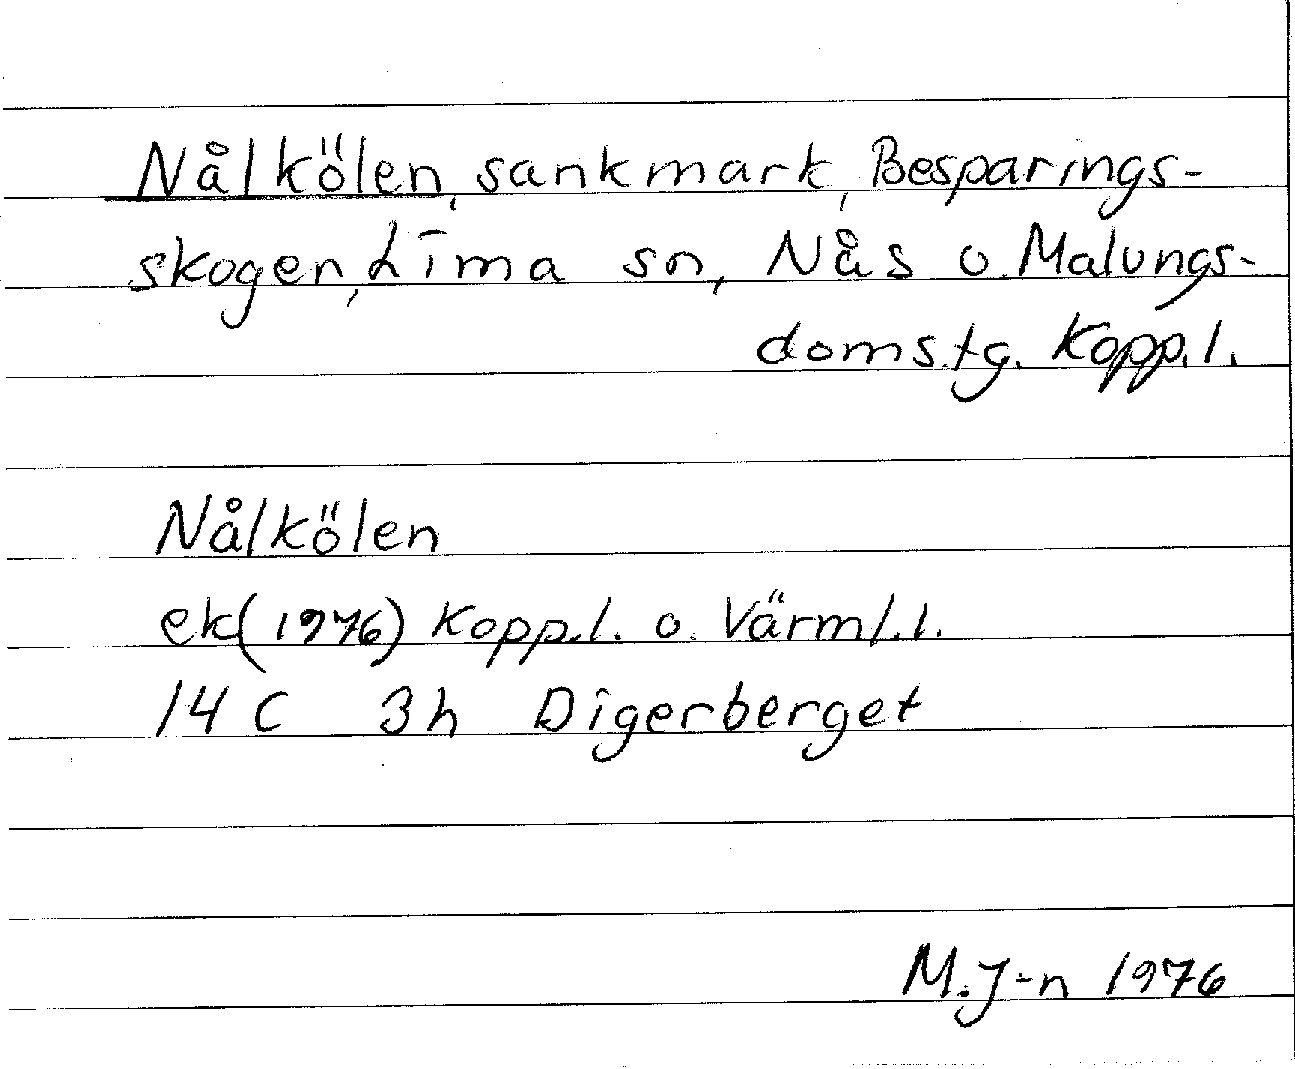 Nålkölen, sankmark, Besparings-
skogen, Lima sn, Nås o. Malungs-
domstg. Kopp.l.
Nålkölen
ek(1976) Kopp.l. o. Värml.l.
14 C 3h Digerberget
M.J-n 1976